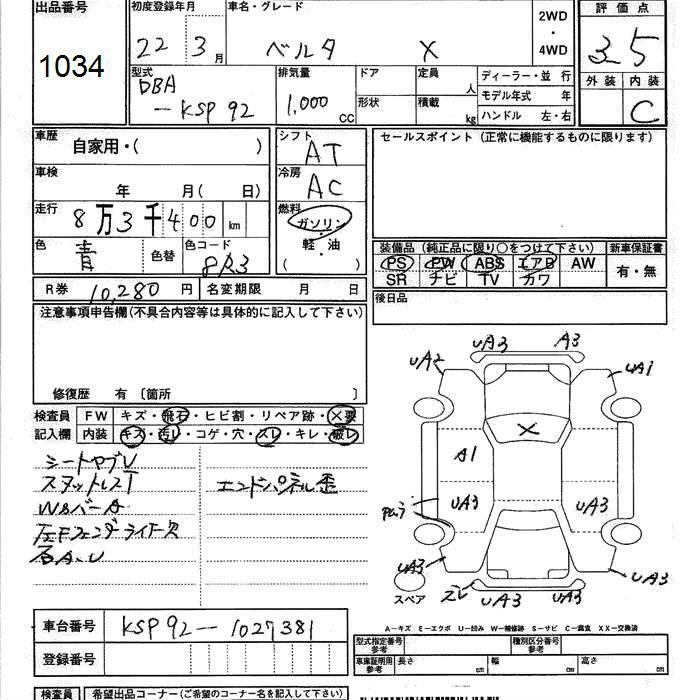 出品番号 初度登録年月 車名・グレード 2WD・4WD 評価点
1034 22 3月 ベルタ X 3.5
型式 DBA-KSP92 排気量 1,000 CC ドア 定員 人 ディーラー・並行 外装 内装 C
形状 積載 kg モデル年式 年
ハンドル 左・右
車歴 自家用・( ) シフト AT セールスポイント (正常に機能するものに限ります)
車検 年 月( 日) 冷房 AC
走行 8万3千400 km 燃料 ガソリン・軽・油 ( )
色 青 色替 色コード 8R3
装備品 (純正品に限り○をつけて下さい) 新車保証書
PS PW ABS エアB AW 有・無
SR ナビ TV カワ
R券 10,280 円 名変期限 月 日 後日品
注意事項申告欄(不具合内容等は具体的に記入して下さい)
修復歴 有 〔箇所 〕
検査員記入欄 FW キズ・飛石・ヒビ割・リペア跡・X要
内装 キズ・汚レ・コゲ・穴・スレ・キレ・破レ
シートヤブレ
スタットレスT エンドパネル歪
WSバーA
左Fフェンダーライナー欠
UA3 A3
UA2 UA1
X
A1
UA3 UA3
UA3 UA3
スペア UA3 UA3
A−キズ E−エクボ U−凹み W−補修跡 S−サビ C−腐食 XX−交換済
車台番号 KSP92-1027381 型式指定番号 参考 種別区分番号 参考
登録番号 車庫証明用 参考 長さ cm 幅 cm 高さ cm
検査員 希望出品コーナー(ご希望のコーナー名を記入して下さい)